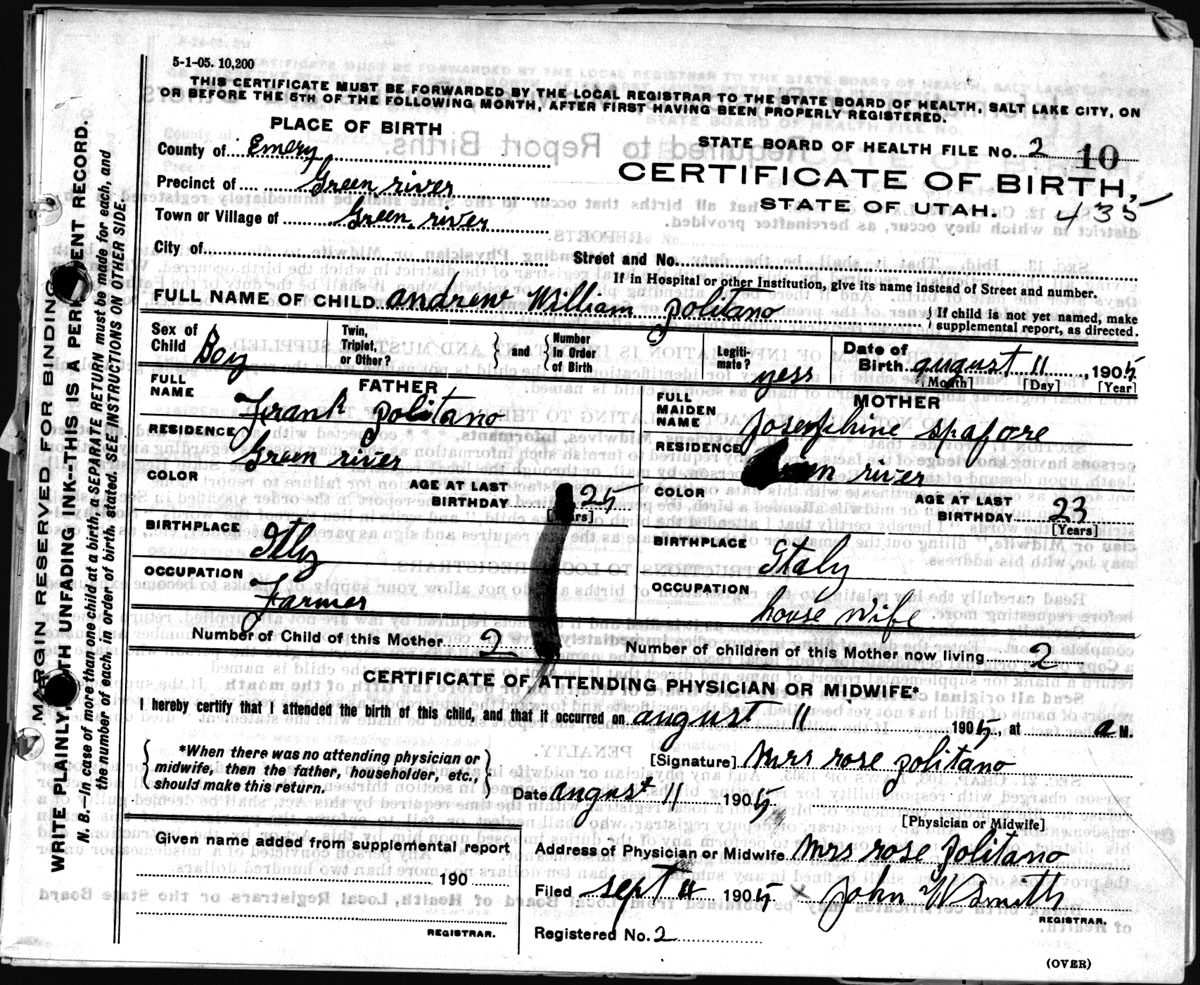 5-1-05. 10,200
THIS CERTIFICATE MUST BE FORWARDED BY THE LOCAL REGISTRAR TO THE STATE BOARD OF HEALTH, SALT LAKE CITY, ON
OR BEFORE THE 5TH OF THE FOLLOWING MONTH, AFTER FIRST HAVING BEEN PROPERLY REGISTERED.
PLACE OF BIRTH
County of Emery
Precinct of Green river
Town or Village of Green river
City of
STATE BOARD OF HEALTH FILE No. 2 10
CERTIFICATE OF BIRTH,
STATE OF UTAH. 435
Street and No.
If in Hospital or other Institution, give its name instead of Street and number.
FULL NAME OF CHILD andrew William politano
{ If child is not yet named, make
supplemental report, as directed.
Sex of Child Boy
Twin, Triplet, or Other? } and { Number in Order of Birth
Legiti-mate? yess
Date of Birth august 11, 1905
[Month] [Day] [Year]
FATHER
FULL NAME Frank politano
RESIDENCE Green river
COLOR
AGE AT LAST BIRTHDAY 25
[Years]
BIRTHPLACE Itly
OCCUPATION Farmer
MOTHER
FULL MAIDEN NAME Josephine spafore
RESIDENCE river
COLOR
AGE AT LAST BIRTHDAY 23
[Years]
BIRTHPLACE Italy
OCCUPATION house wife
Number of Child of this Mother 2
Number of children of this Mother now living 2
CERTIFICATE OF ATTENDING PHYSICIAN OR MIDWIFE*
I hereby certify that I attended the birth of this child, and that it occurred on august 11 1905, at a M.
{ *When there was no attending physician or
midwife, then the father, householder, etc.,
should make this return. }
[Signature] Mrs rose politano
Date august 11 1905
[Physician or Midwife]
Given name added from supplemental report
190
REGISTRAR.
Address of Physician or Midwife Mrs rose politano
Filed sept 4 1905 x John W Smith
REGISTRAR.
Registered No. 2
(OVER)
MARGIN RESERVED FOR BINDING
WRITE PLAINLY WITH UNFADING INK--THIS IS A PERMANENT RECORD.
N. B.--In case of more than one child at birth, a SEPARATE RETURN must be made for each, and
the number of each, in order of birth, stated. SEE INSTRUCTIONS ON OTHER SIDE.